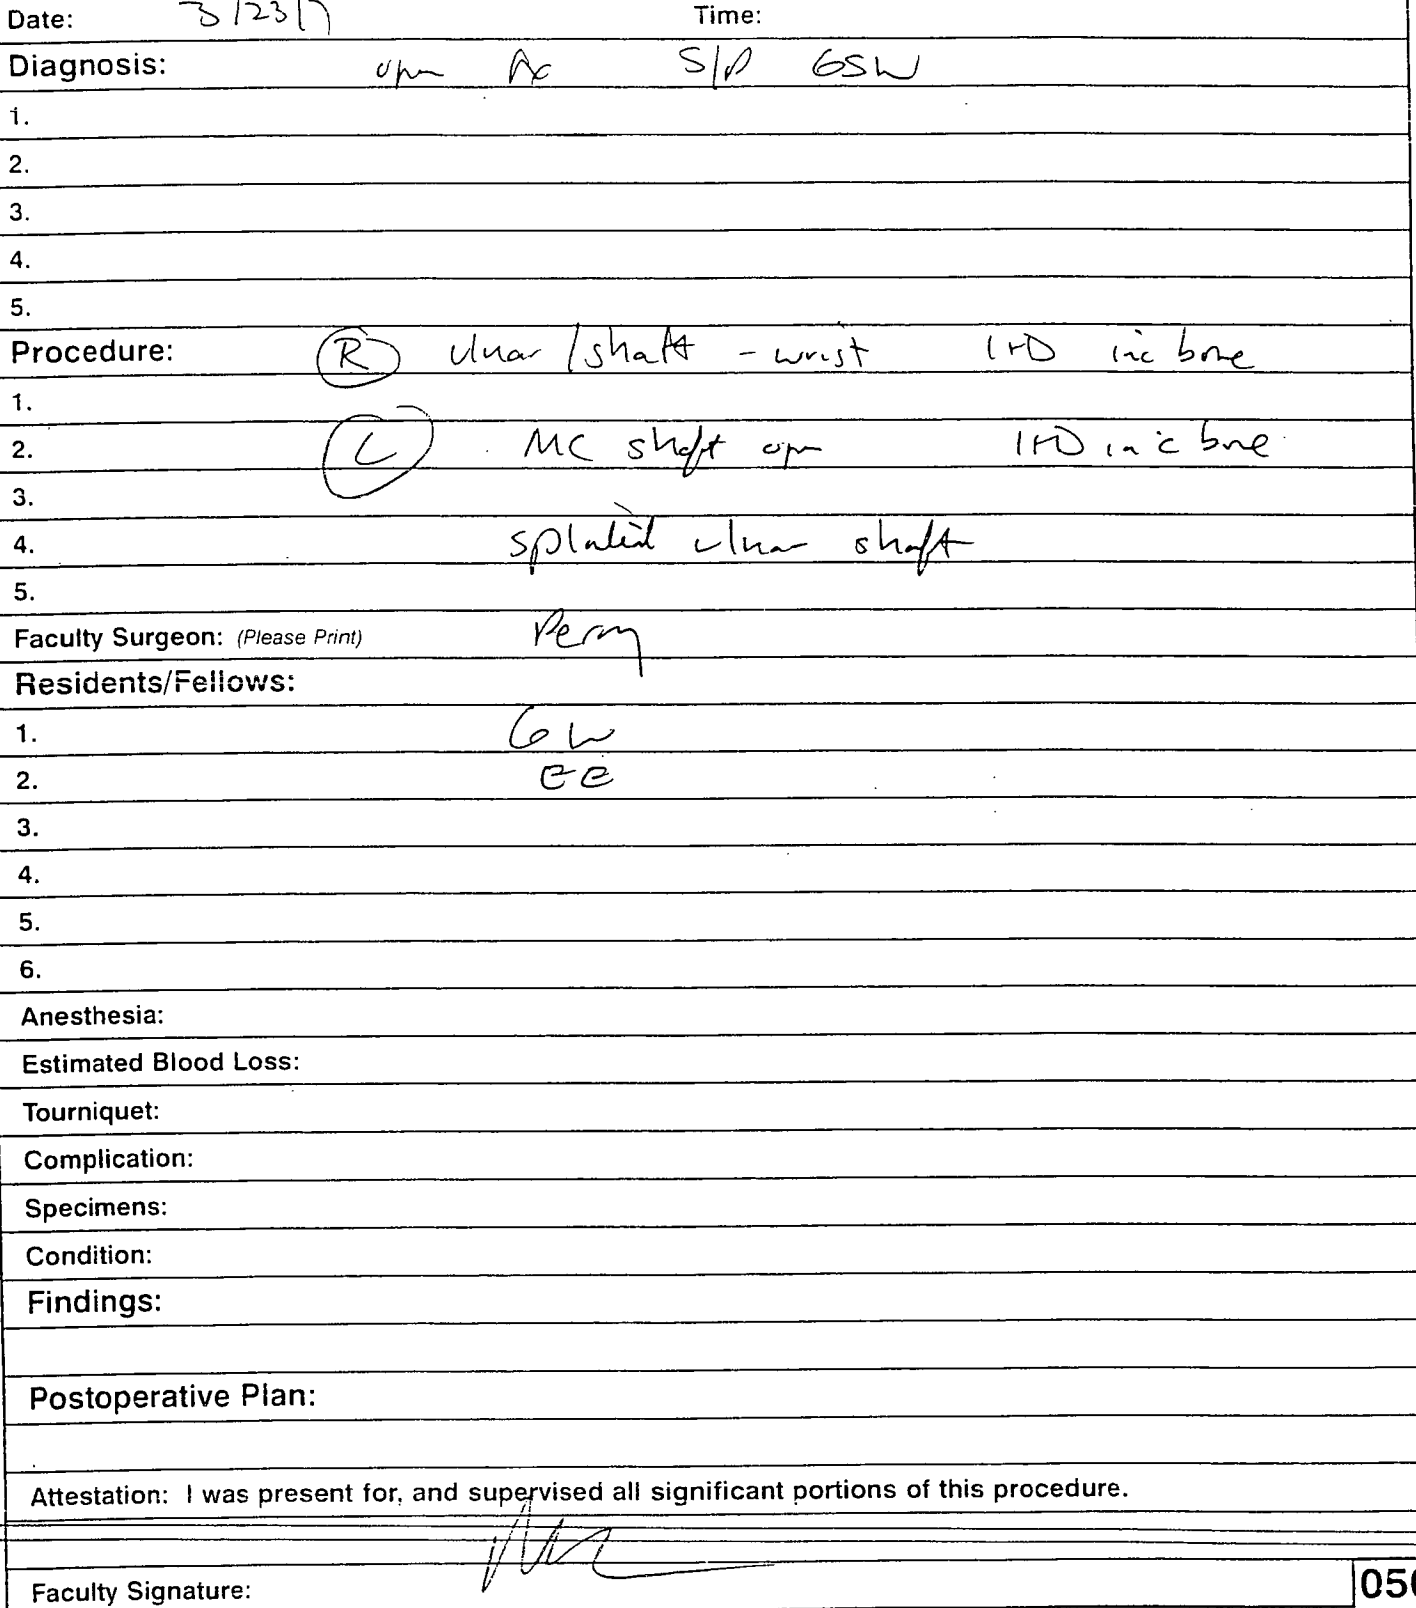 Date: 3/23/7 Time:
Diagnosis: open fx S/P GSW
1.
2.
3.
4.
5.
Procedure: (R) ulnar/shaft - wrist I+D inc bone
1.
2. (L) MC shaft open I+D inc bone
3.
4. ulnar shaft
5.
Faculty Surgeon: (Please Print) Perry
Residents/Fellows:
1. GW
2. EE
3.
4.
5.
6.
Anesthesia:
Estimated Blood Loss:
Tourniquet:
Complication:
Specimens:
Condition:
Findings:
Postoperative Plan:
Attestation: I was present for, and supervised all significant portions of this procedure.
Faculty Signature:
050